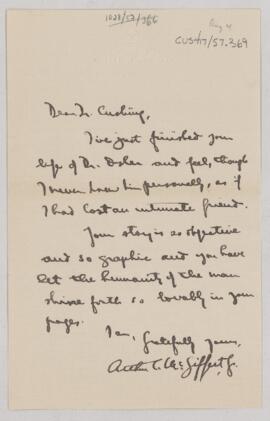 1028/57/366
Aug 4
CUS417/57.369
Dear Dr. Cushing,
I've just finished your
life of Dr. Osler and feel, though
I never knew him personally, as if
I had lost an intimate friend.
Your story is so objective
and so graphic and you have
let the humanity of the man
shine forth so lovably in your
pages.
I am, Gratefully yours,
Arthur C. McGiffert, Jr.